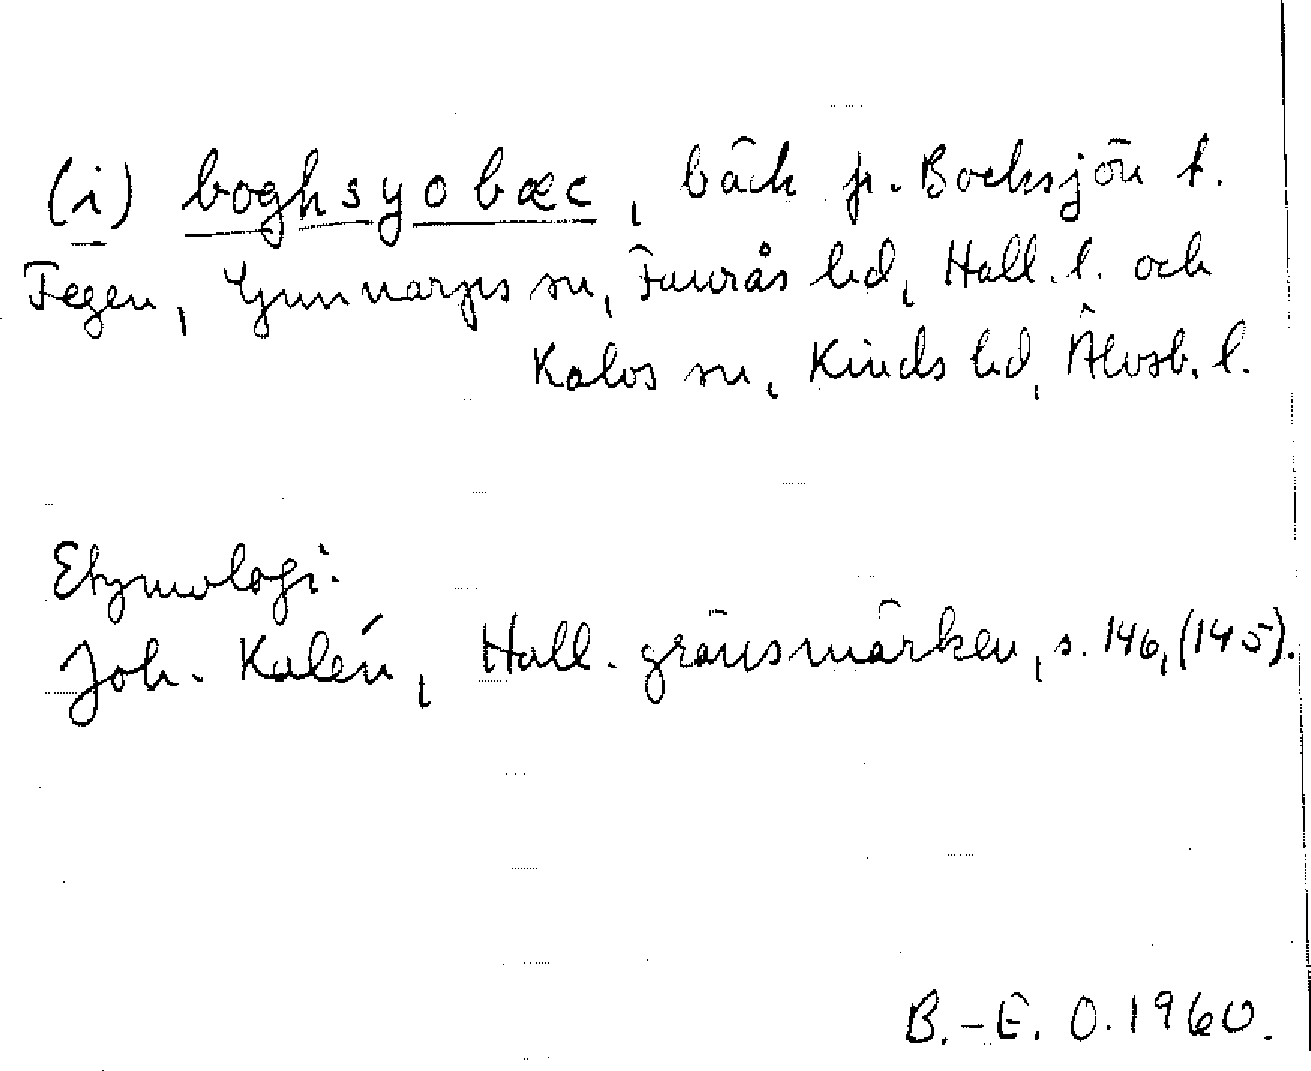 (i) boghsyobæc, bäck fr. Bocksjön t.
Fegen, Gunnarps sn, Faurås hd, Hall. l. och
Kalvs sn, Kinds hd, Älvsb. l.
Etymologi:
Joh. Kalén, Hall. gränsmärken, s. 146, (145).
B.-E. O. 1960.